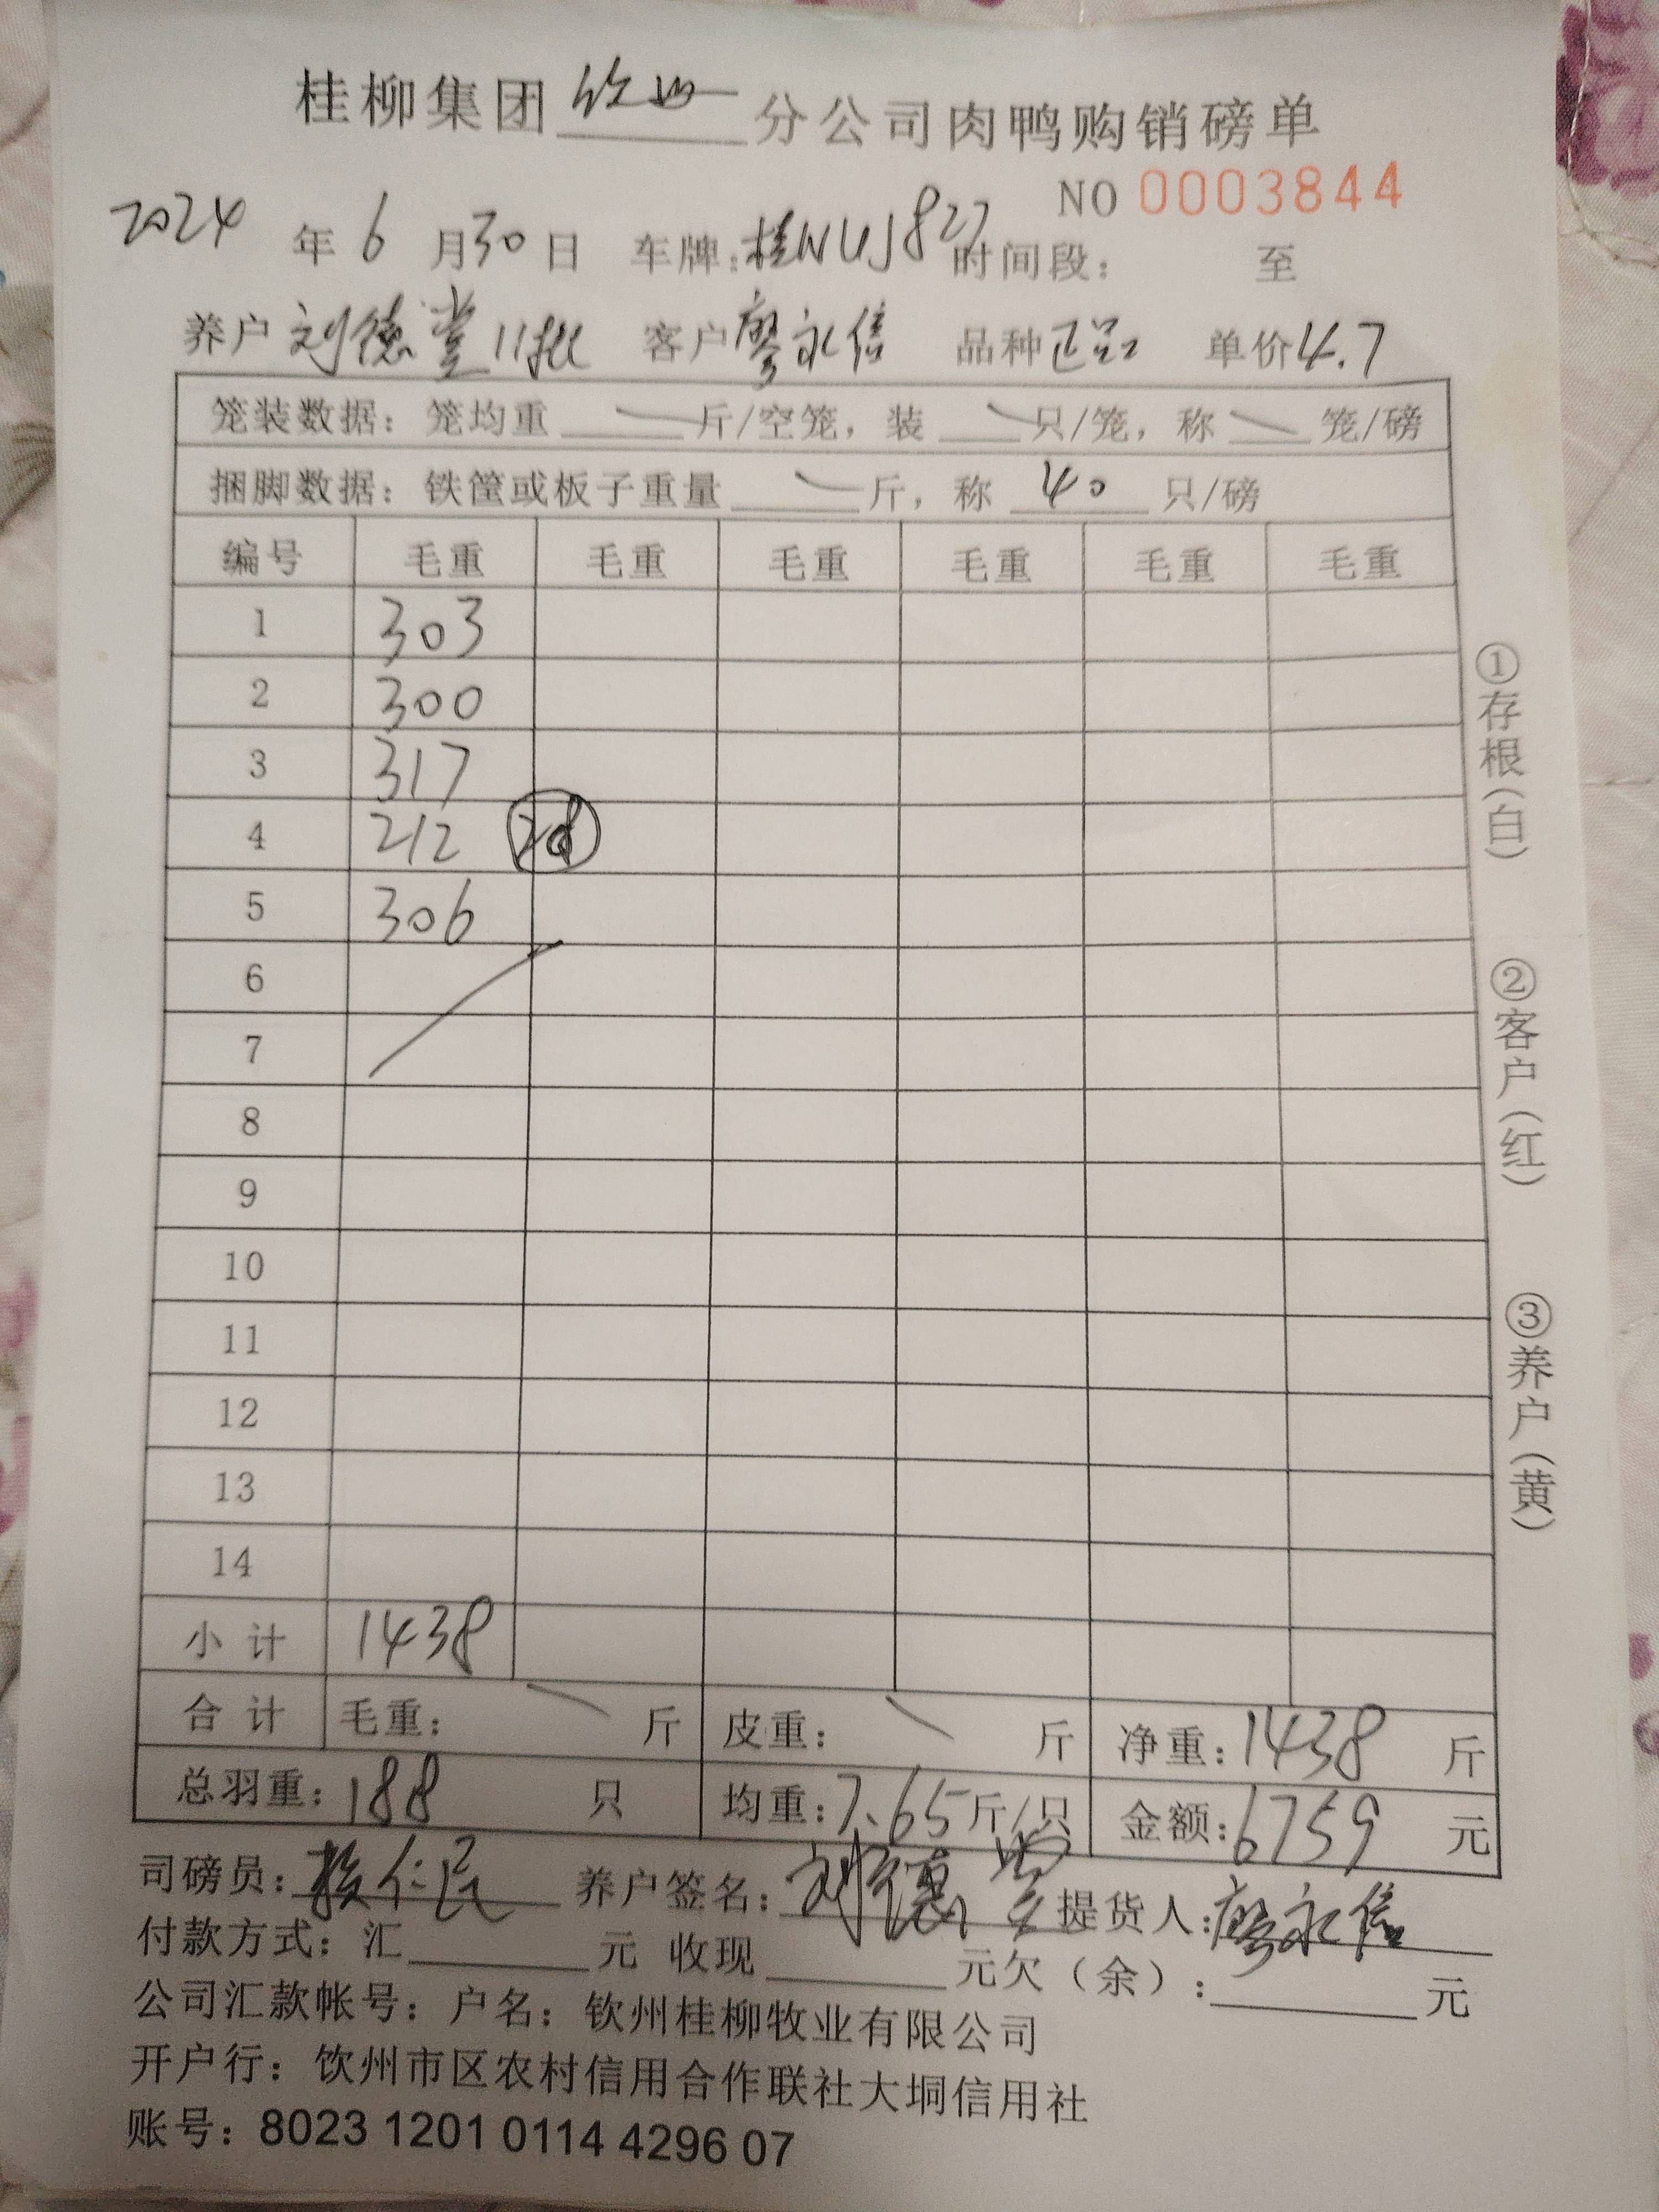 桂柳集团 钦州 分公司肉鸭购销磅单
NO 0003844
2024 年 6 月 30 日 车牌:桂NUJ827 时间段: 至
养户 刘德堂 11批 客户 廖永信 品种 正品 单价 4.7
笼装数据: 笼均重 斤/空笼, 装 只/笼, 称 笼/磅
捆脚数据: 铁筐或板子重量 斤, 称 40 只/磅
编号 毛重 毛重 毛重 毛重 毛重 毛重
1 303
2 300
3 317
4 212 28
5 306
6
7
8
9
10
11
12
13
14
小计 1438
合计 毛重: 斤 皮重: 斤 净重: 1438 斤
总羽重: 188 只 均重: 7.65 斤/只 金额: 6759 元
司磅员: 仁民 养户签名: 刘德堂 提货人: 廖永信
付款方式: 汇 元 收现 元欠(余): 元
公司汇款帐号: 户名: 钦州桂柳牧业有限公司
开户行: 饮州市区农村信用合作联社大垌信用社
账号: 8023 1201 0114 4296 07
①存根(白)
②客户(红)
③养户(黄)